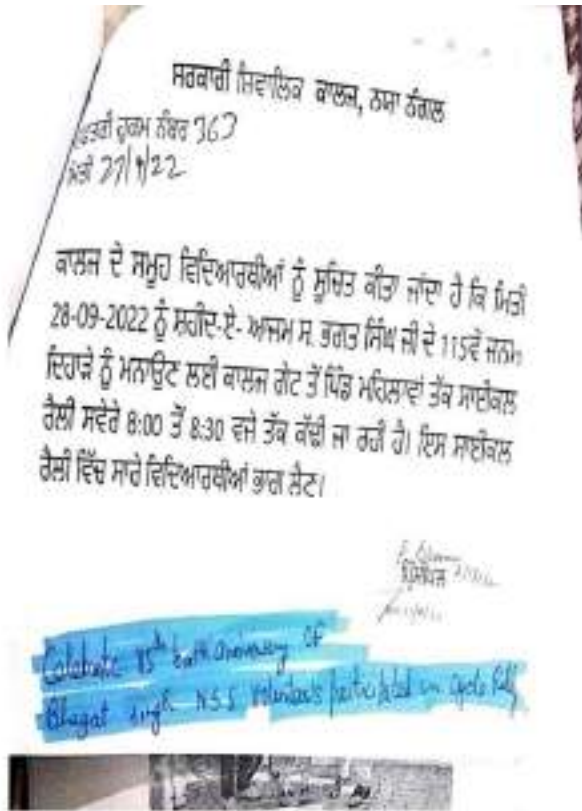 ਸਰਕਾਰੀ ਸ਼ਿਵਾਲਿਕ ਕਾਲਜ, ਨਯਾ ਨੰਗਲ
ਦਫ਼ਤਰੀ ਹੁਕਮ ਨੰਬਰ 363
ਮਿਤੀ 27/9/22
ਕਾਲਜ ਦੇ ਸਮੂਹ ਵਿਦਿਆਰਥੀਆਂ ਨੂੰ ਸੂਚਿਤ ਕੀਤਾ ਜਾਂਦਾ ਹੈ ਕਿ ਮਿਤੀ
28-09-2022 ਨੂੰ ਸ਼ਹੀਦ-ਏ- ਆਜਮ ਸ. ਭਗਤ ਸਿੰਘ ਜੀ ਦੇ 115ਵੇਂ ਜਨਮ
ਦਿਹਾੜੇ ਨੂੰ ਮਨਾਉਣ ਲਈ ਕਾਲਜ ਗੇਟ ਤੋਂ ਪਿੰਡ ਮਹਿਲਾਵਾਂ ਤੱਕ ਸਾਈਕਲ
ਰੈਲੀ ਸਵੇਰੇ 8:00 ਤੋਂ 8:30 ਵਜੇ ਤੱਕ ਕੱਢੀ ਜਾ ਰਹੀ ਹੈ। ਇਸ ਸਾਈਕਲ
ਰੈਲੀ ਵਿੱਚ ਸਾਰੇ ਵਿਦਿਆਰਥੀਆਂ ਭਾਗ ਲੈਣ।
ਪ੍ਰਿੰਸੀਪਲ
Celebrate birth anniversary OF
Bhagat singh NSS Volunteers participated in cycle Rally